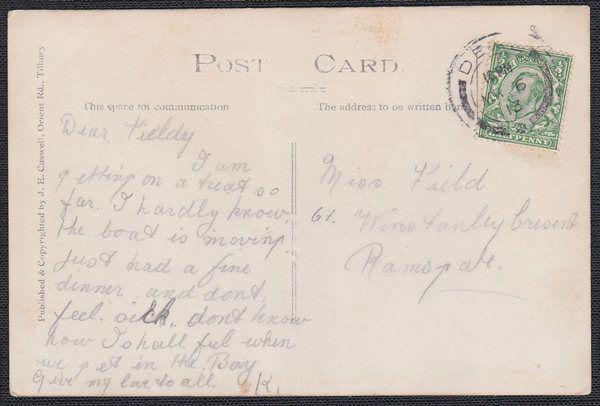 POST CARD
This space for communication
The address to be written her
Published & Copyrighted by J. E. Caswell, Orient Rd., Tilbury
Dear Fieldy
I am
getting on a treat so
far. I hardly know
the boat is moving.
Just had a fine
dinner and dont
feel sick. dont know
how I shall ful when
we get in the Bay
Give my love to all. K.
Miss Field
61. Winstanley Cresent
Ramsgate.
HALFPENNY
DE
6
13